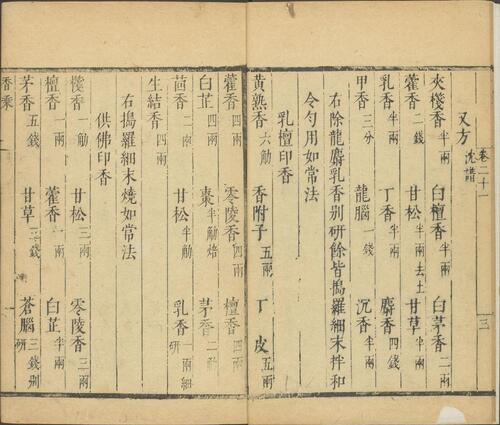 卷二十一
三
又方 沈譜
夾棧香半兩 白檀香半兩 白茅香二兩
藿香二錢 甘松半兩去土 甘草半兩
乳香半兩 丁香半兩 麝香四錢
甲香三分 龍腦一錢 沉香半兩
右除龍麝乳香別研餘皆搗羅細末拌和
令勻用如常法
乳檀印香
黃熟香六觔 香附子五兩 丁皮五兩
藿香四兩 零陵香四兩 檀香四兩
白芷四兩 棗半觔焙 茅香二觔
茴香二兩 甘松半觔 乳香一兩細研
生結香四兩
右搗羅細末燒如常法
供佛印香
棧香一觔 甘松三兩 零陵香三兩
檀香一兩 藿香一兩 白芷半兩
茅香五錢 甘草三錢 蒼腦三錢別研
香乘